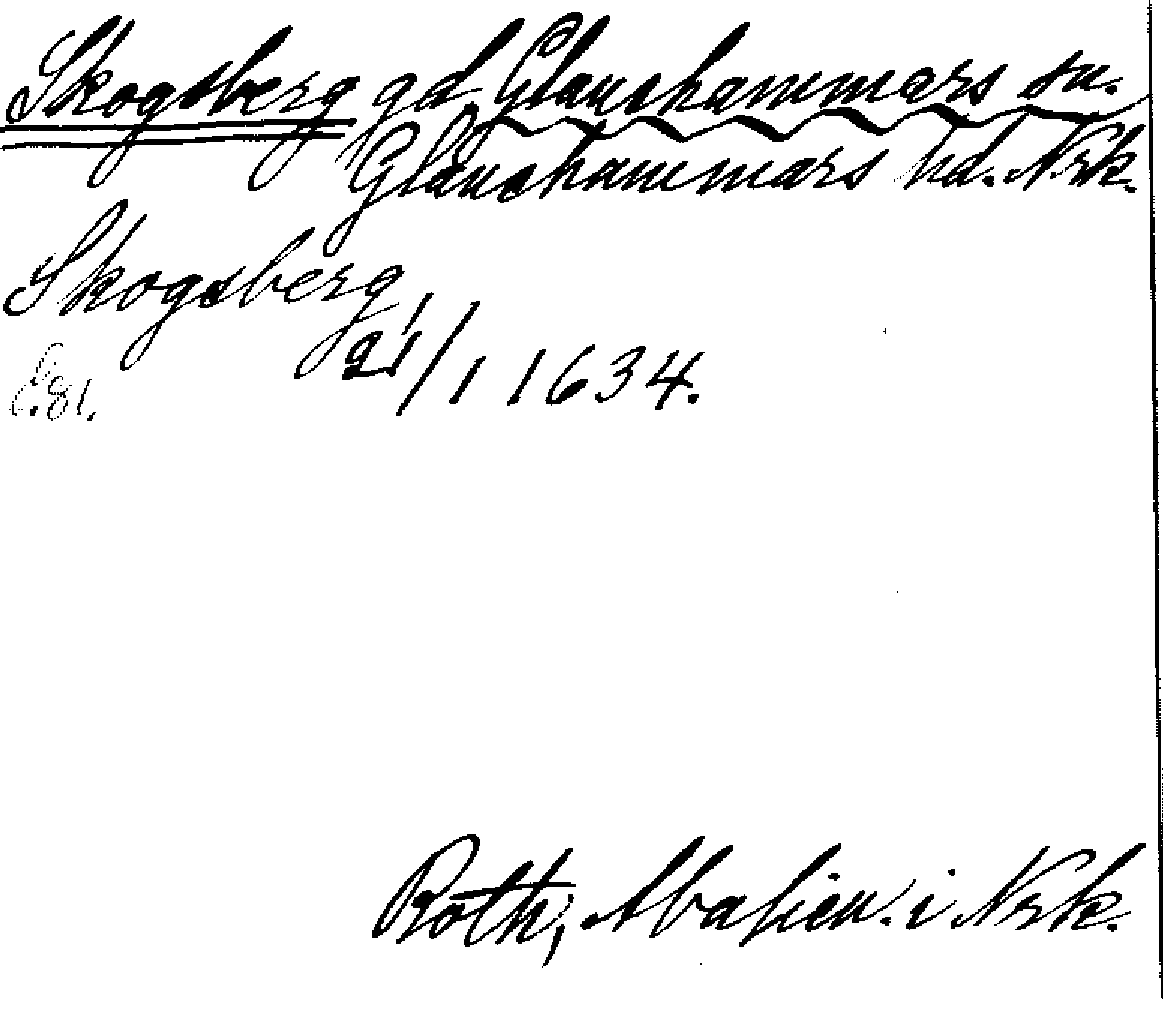 Skogsberg gd Glanshammars sn.
Glanshammars hd. Nrk.
Skogsberg
21/1 1634.
E.81.
Roth, Abalien. i Nrk.